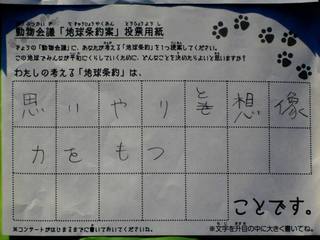 動物会議「地球条約案」投票用紙
きょうの「動物会議」に、あなたが考える「地球条約」を1つ提案してください。
この地球でみんなが平和にくらしていくために、どんなことを決めたらよいと思いますか?
わたしの考える「地球条約」は、
思いやりと想像
力をもつ
ことです。
※コンサートがはじまるまでに書いておいてくださいね。
※文字を升目の中に大きく書いてね。